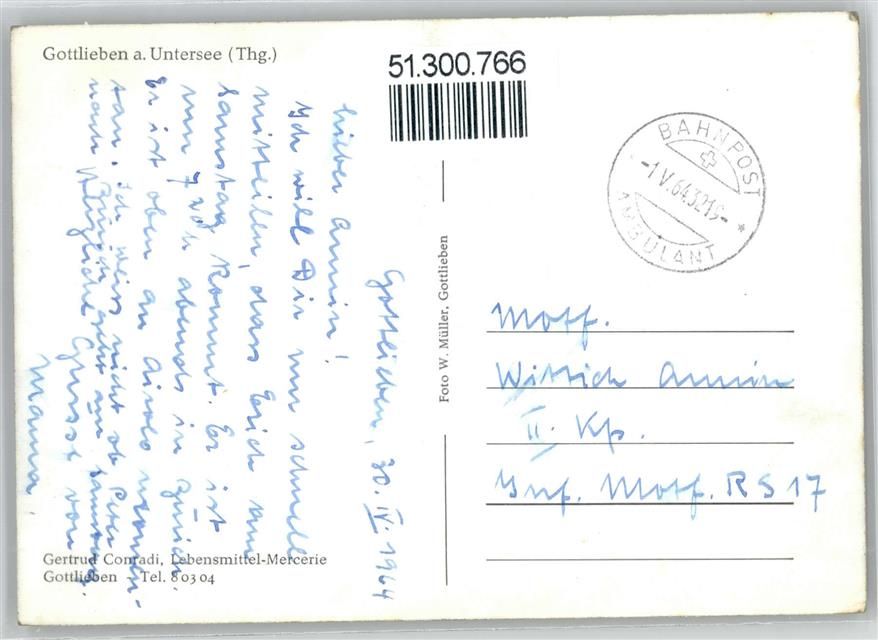 Gottlieben a. Untersee (Thg.)
51.300.766
Gottlieben, 30. IV. 1964
Lieber Armin!
Ich will Dir nur schnell
mitteilen, dass Erich am
Samstag kommt. Er ist
um 7 Uhr abends in Zürich.
Er ist oben an Airolo
Ich weiss nicht ob Peter
nach Zürich geht am Samstag.
Herzliche Grüsse von
Mama
Gertrud Conradi, Lebensmittel-Mercerie
Gottlieben Tel. 8 03 04
Foto W. Müller, Gottlieben
BAHNPOST
-1.V.64.3219-
AMBULANT
*
Motf.
Wittich Armin
II. Kp.
Inf. Motf. RS 17